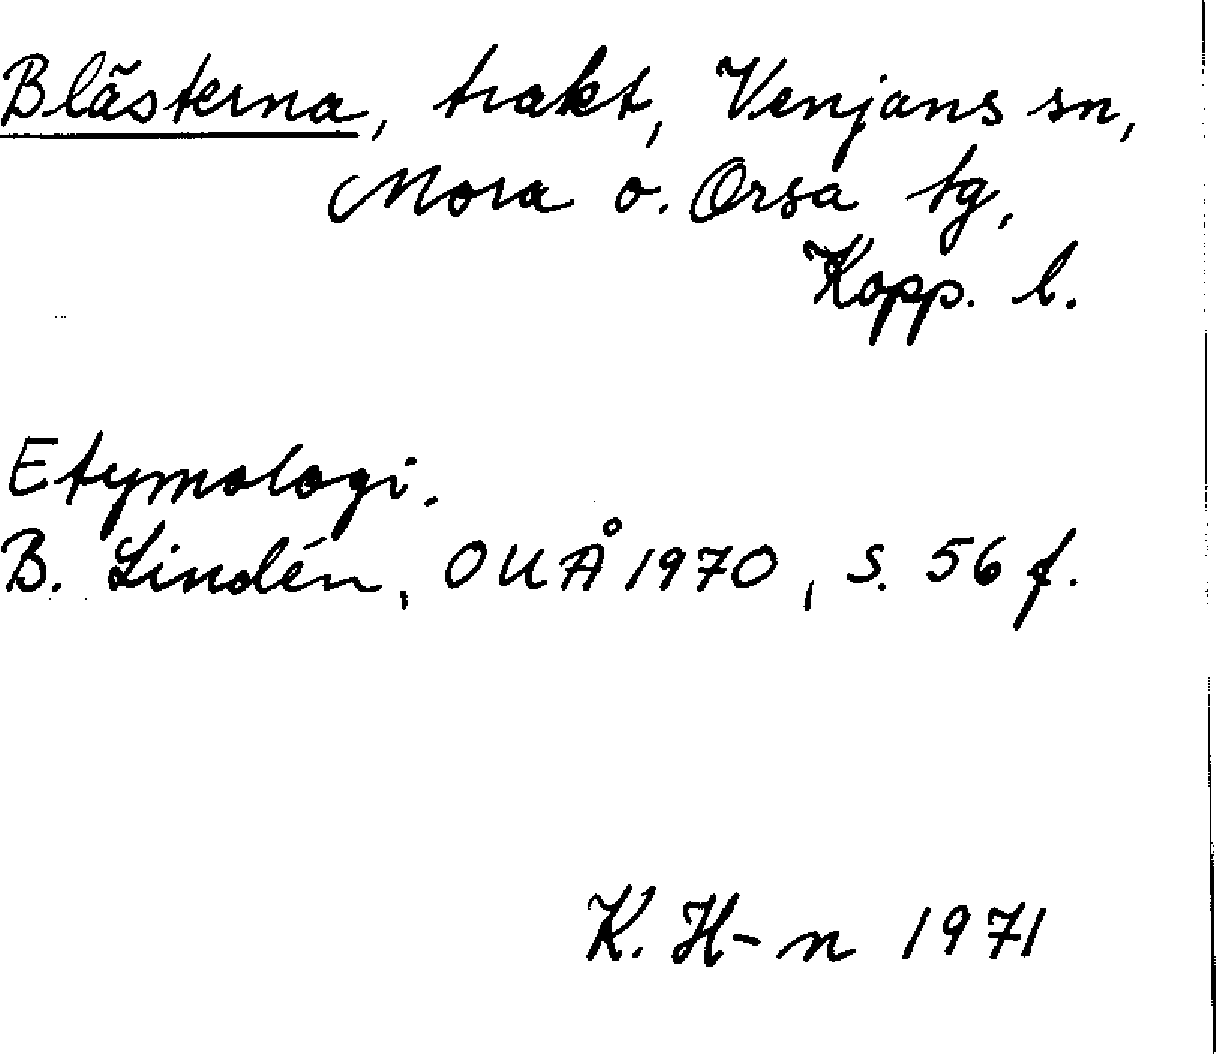 Blästerna, trakt, Venjans sn,
Mora o. Orsa tg,
Kopp. l.
Etymologi.
B. Lindén, OUÅ 1970, s. 56 f.
K. H-n 1971